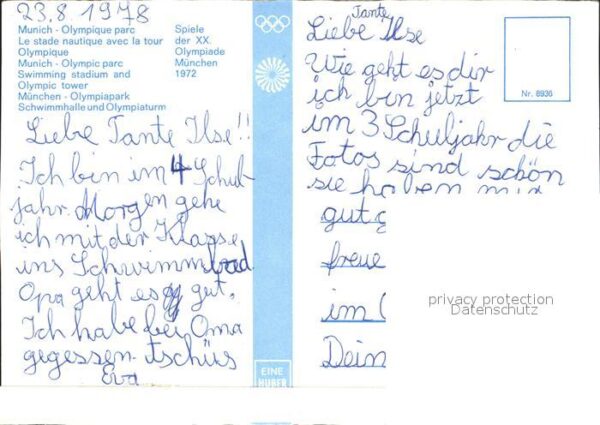 23.8.1978
Munich - Olympique parc
Le stade nautique avec la tour
Olympique
Munich - Olympic parc
Swimming stadium and
Olympic tower
München - Olympiapark
Schwimmhalle und Olympiaturm
Spiele
der XX.
Olympiade
München
1972
Liebe Tante Ilse!!
Ich bin im 4 Schul-
jahr. Morgen gehe
ich mit der Klasse
ins Schwimmbad
Opa geht es gut.
Ich habe bei Oma
gegessen. tschüs
Eva
EINE
HUBER
Tante
Liebe Ilse
Wie geht es dir
ich bin jetzt
im 3 Schuljahr die
Fotos sind schön
sie haben mir
gut
freue
im
Dein
Nr. 8936
privacy protection
Datenschutz